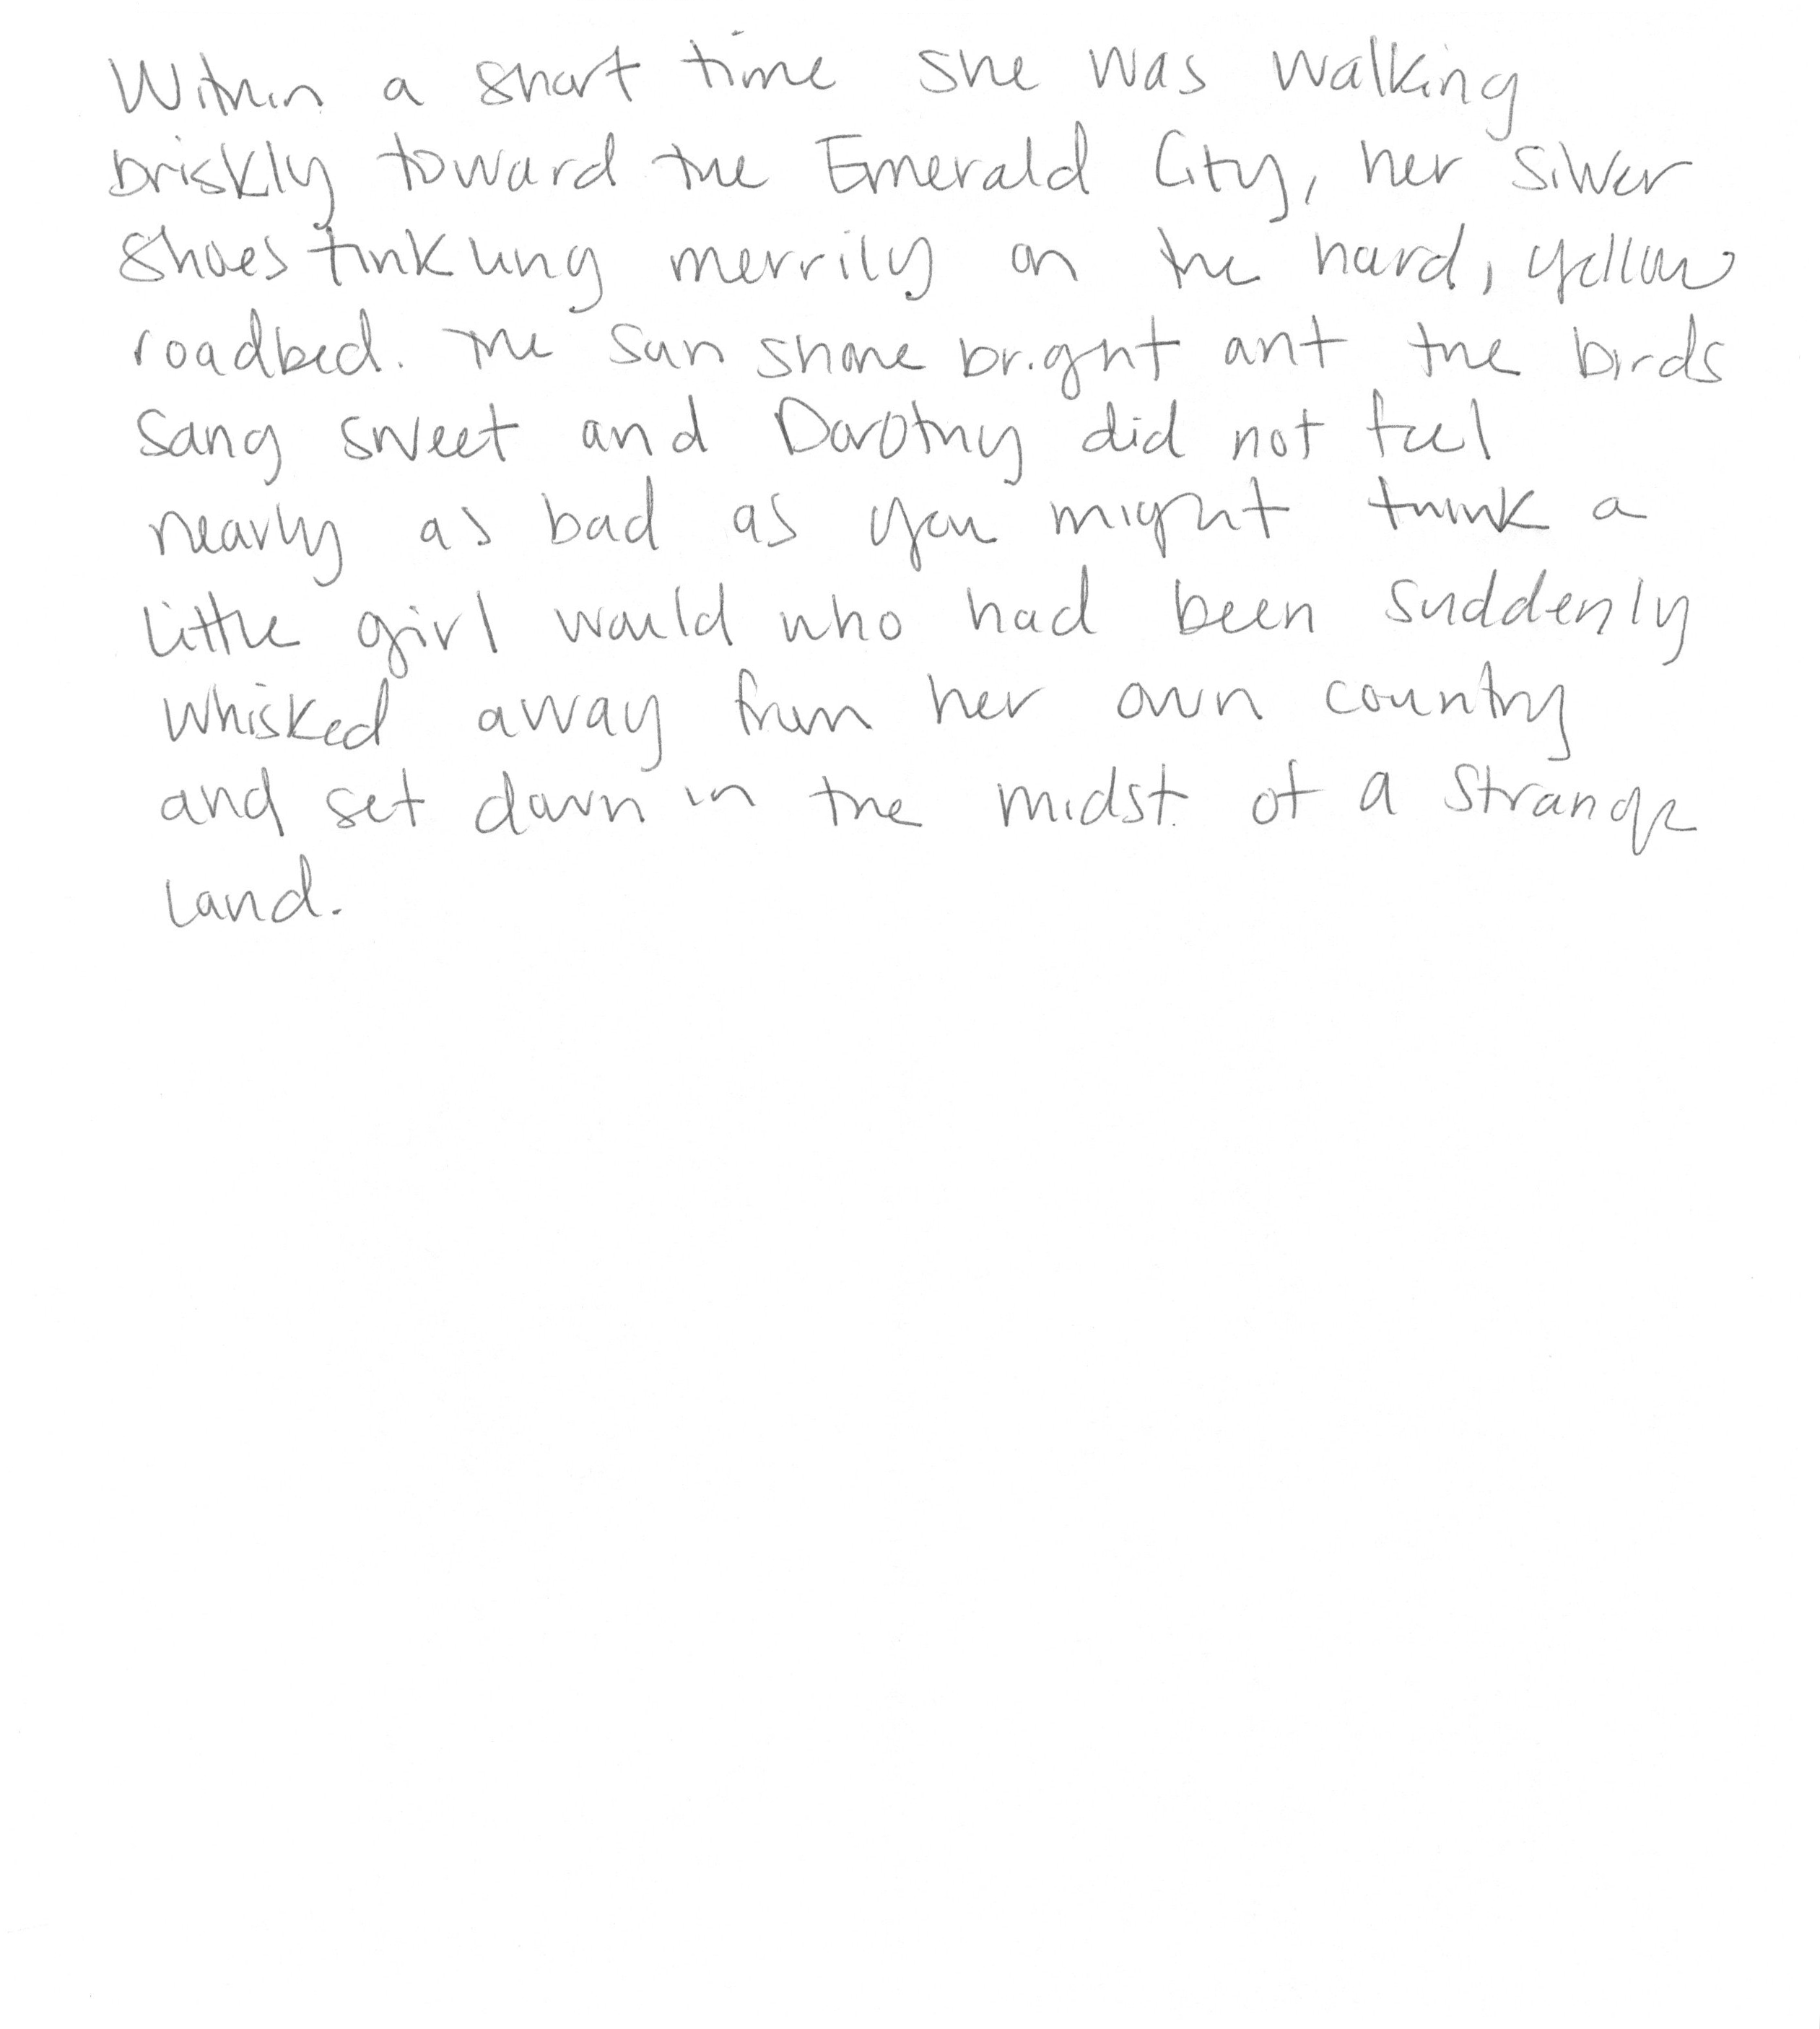 Within a short time she was walking
briskly toward the Emerald City, her silver
shoes tinkling merrily on the hard, yellow
roadbed. The sun shone bright ant the birds
sang sweet and Dorothy did not feel
nearly as bad as you might think a
little girl would who had been suddenly
whisked away from her own country
and set down in the midst of a strange
land.